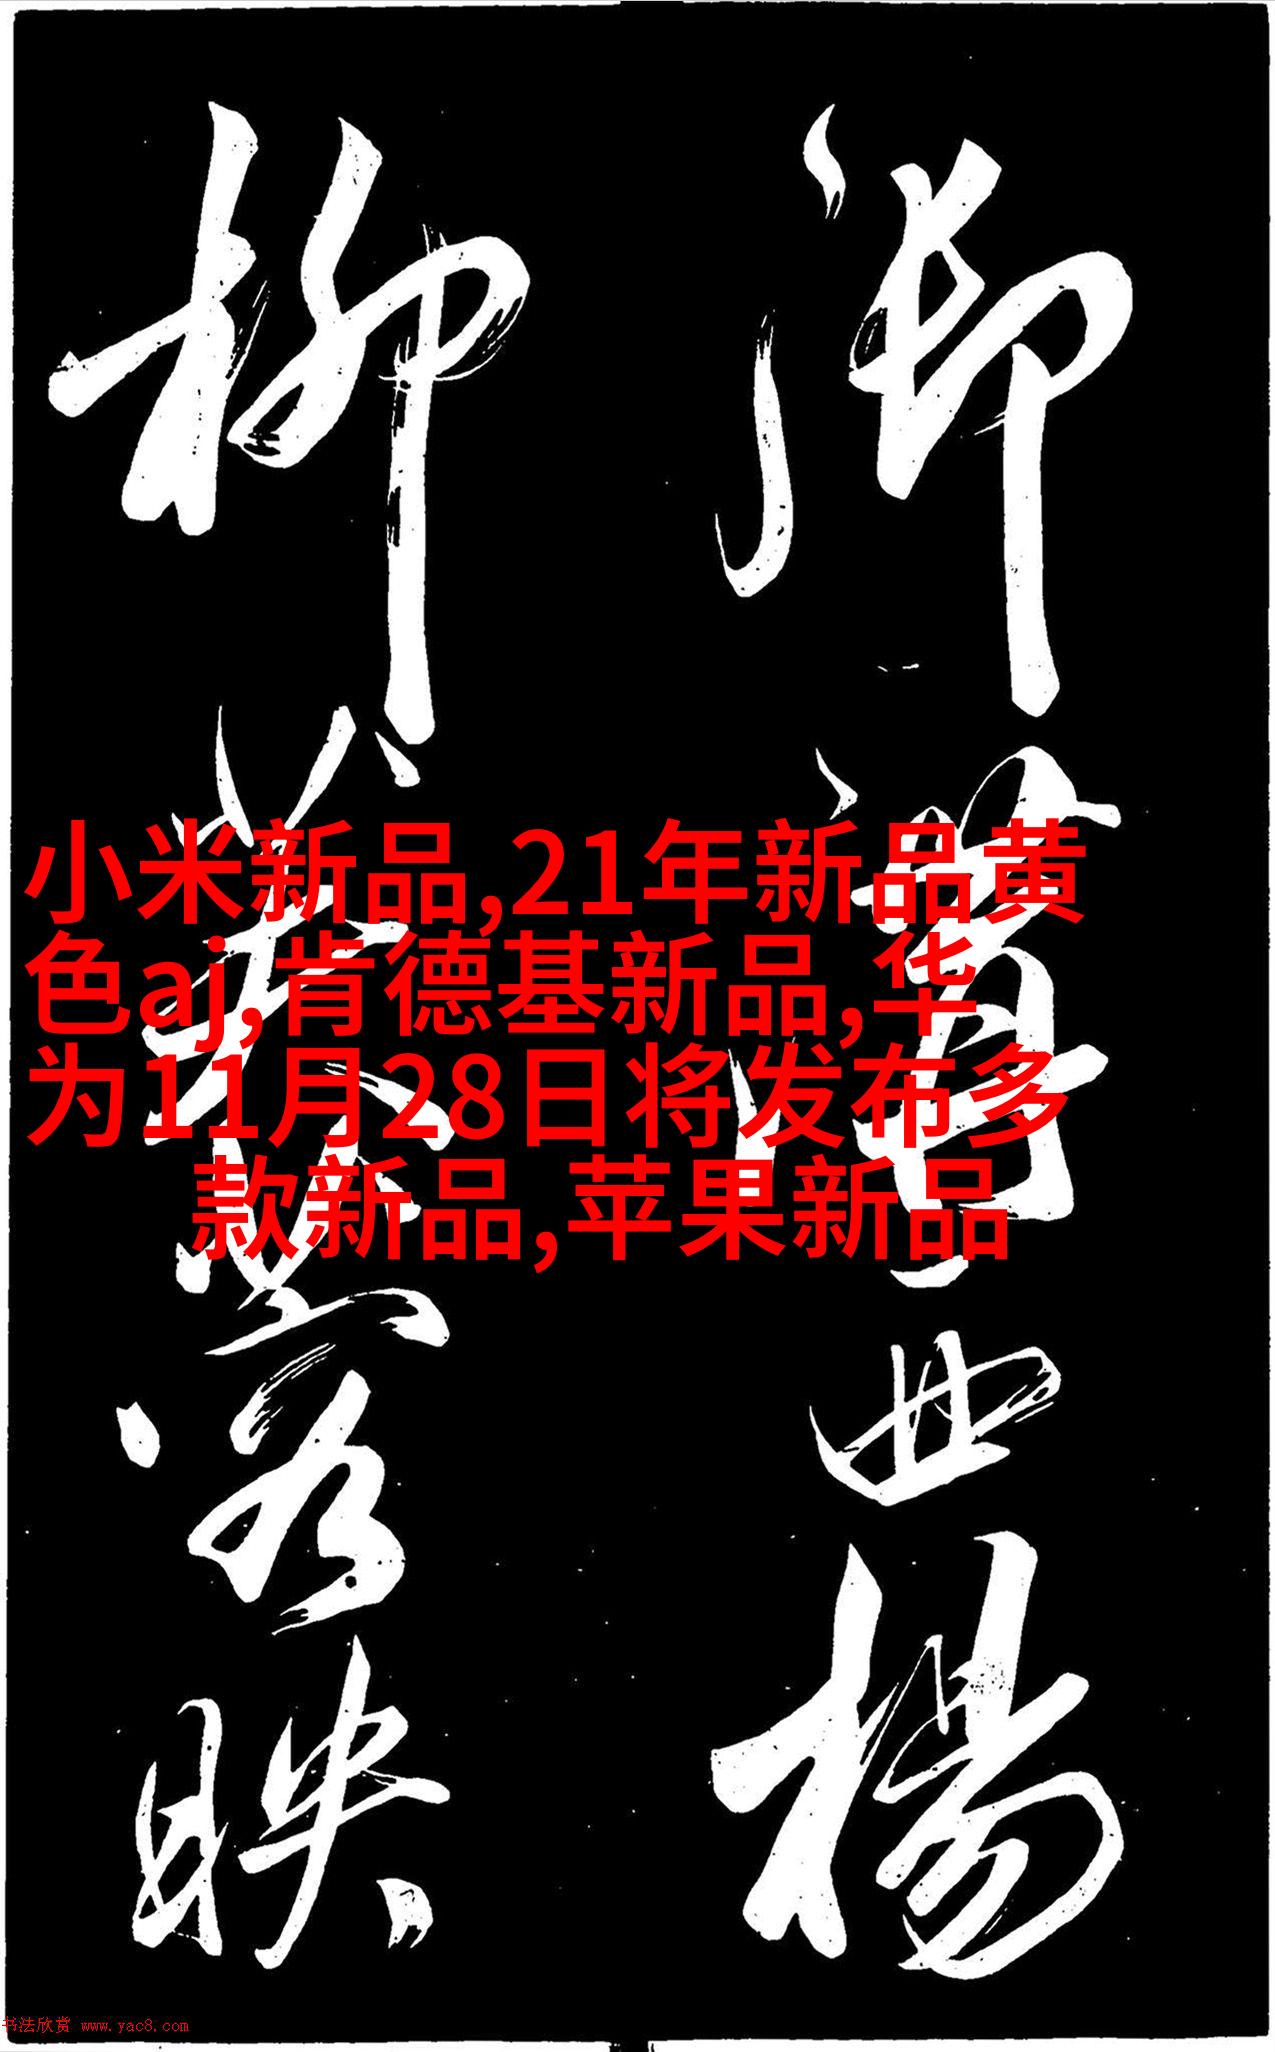 小米新品,21年新品黄
色aj,肯德基新品,华
为11月28日将发布多
款新品,苹果新品
溝西楊
柳
映
书法欣赏 www.yac8.com